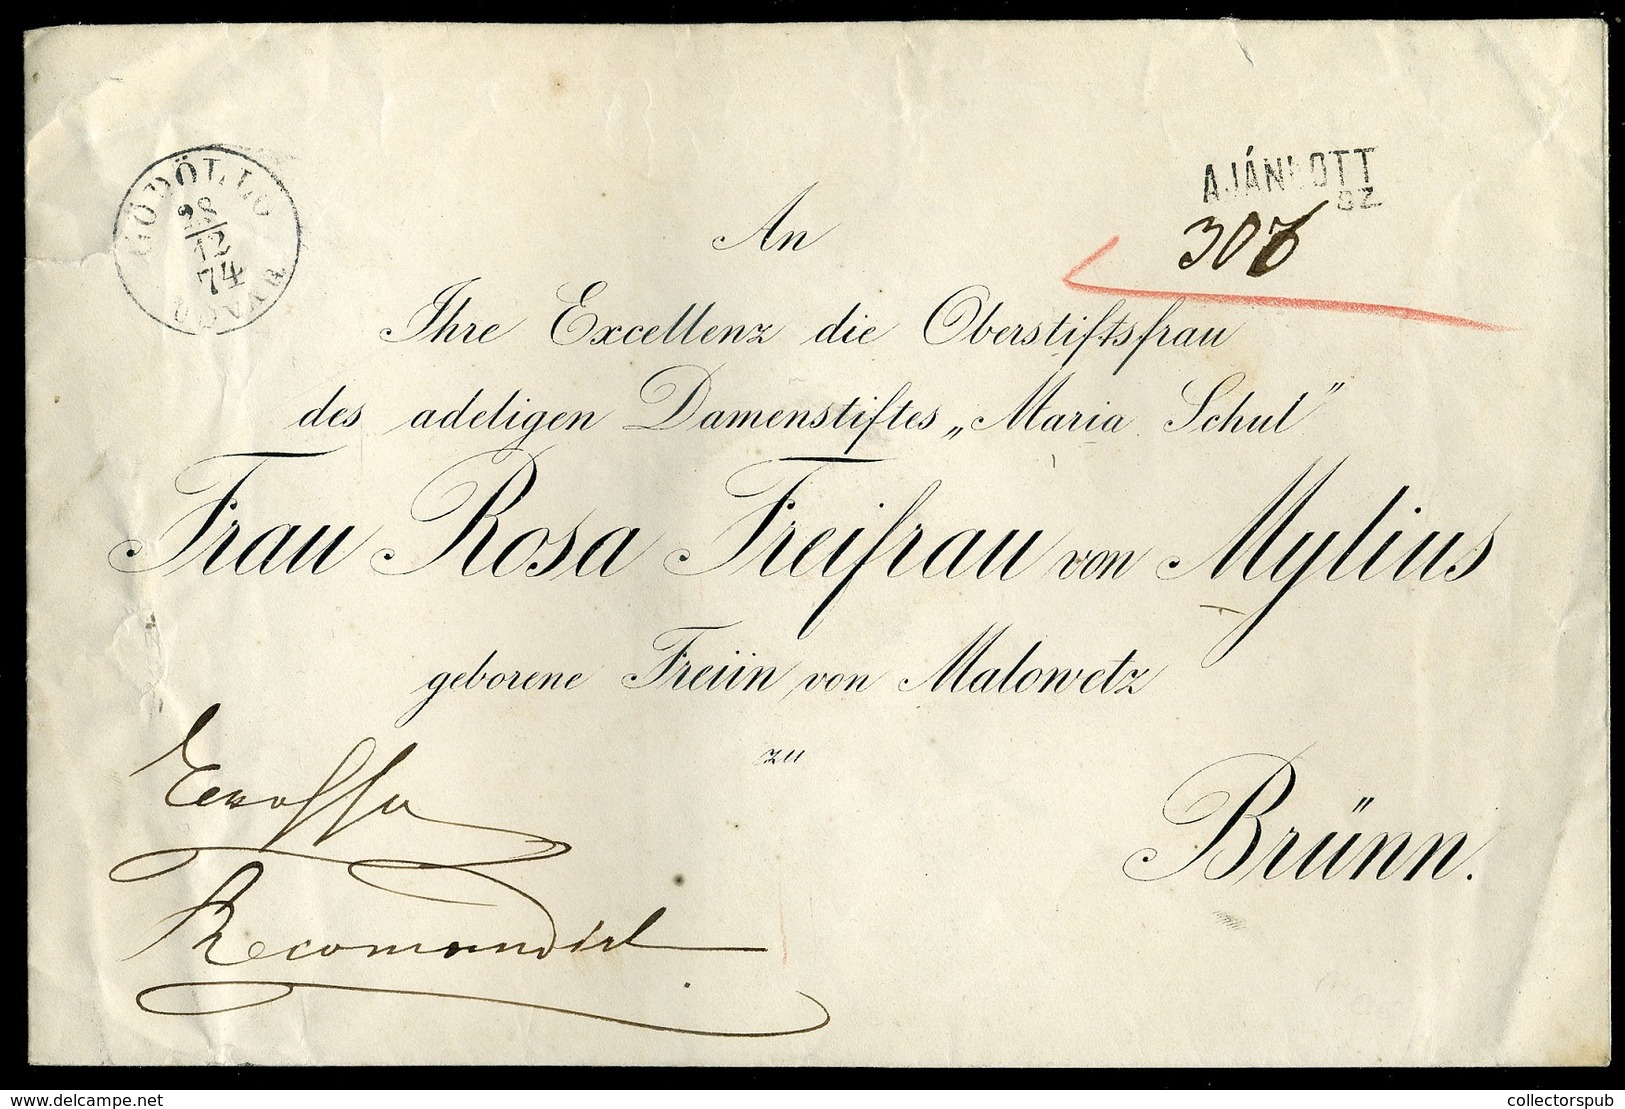 GÖDÖLLŐ UDVAR
28
12
74
AJÁNLOTT
SZ
306
An
Ihre Excellenz die Oberstiftsfrau
des adeligen Damenstiftes „Maria Schul"
Frau Rosa Freifrau von Mylius
geborene Freiin von Malowetz
zu
Brünn.
Recomandirt
delcampe.net
collectorspub